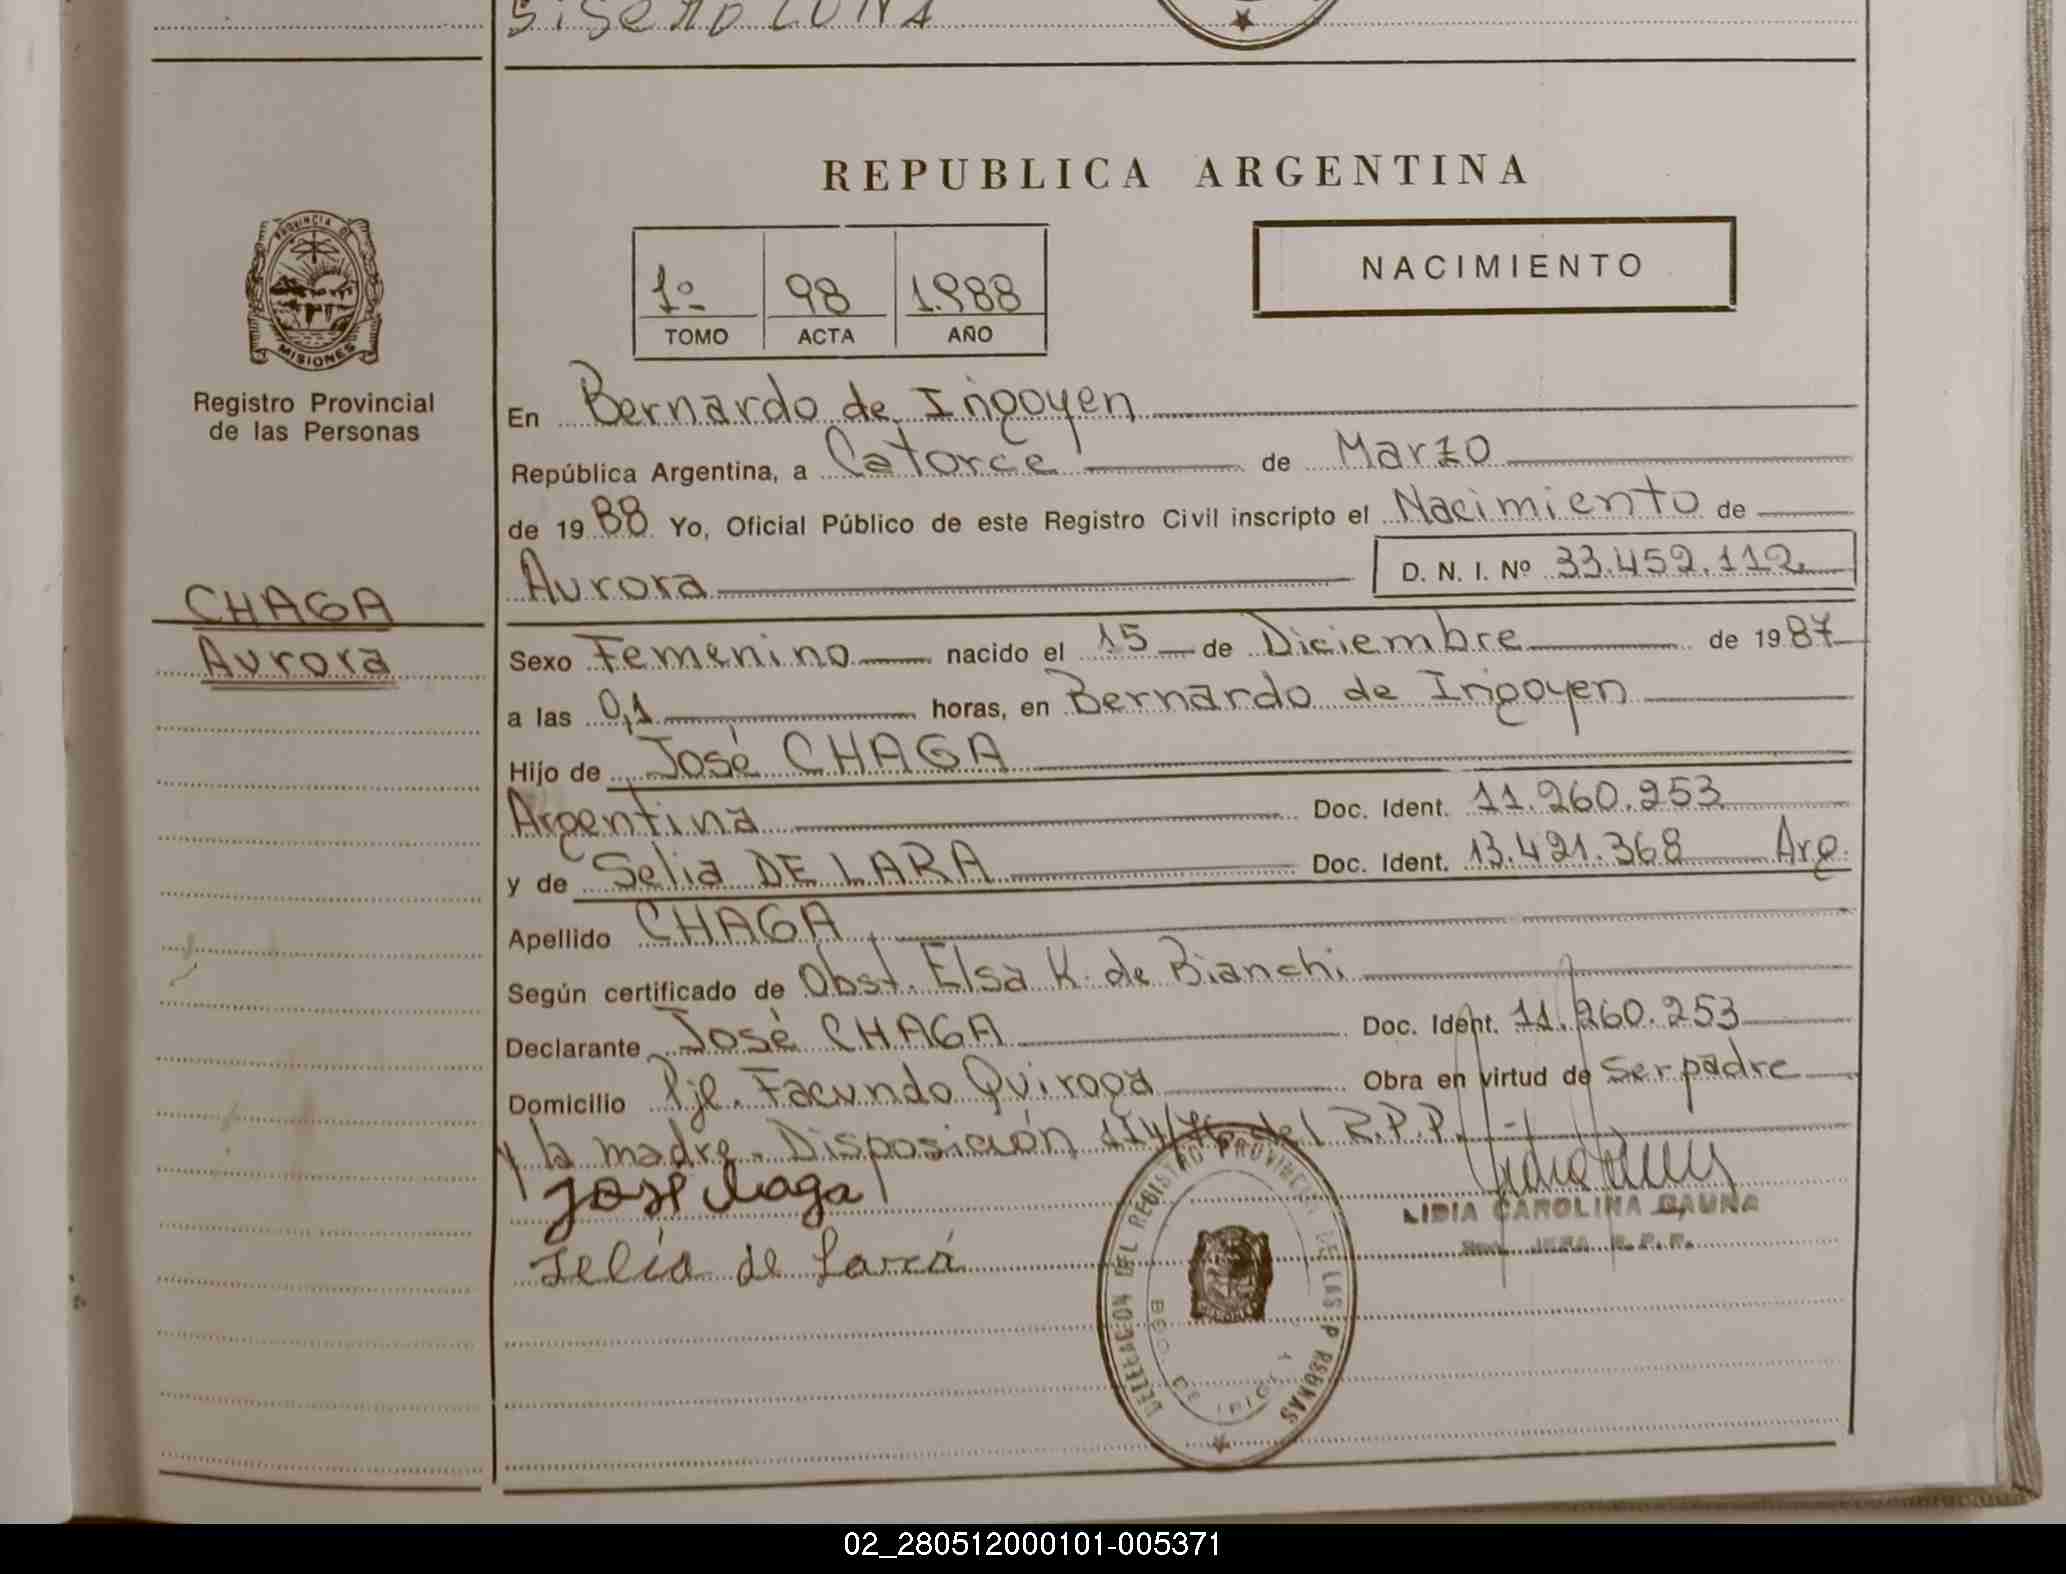 SISERO LUNA
REPUBLICA ARGENTINA
PROVINCIA DE
MISIONES
Registro Provincial
de las Personas
1º 98 1.988
TOMO ACTA AÑO
NACIMIENTO
En Bernardo de Irigoyen
República Argentina, a Catorce de Marzo
de 19 88 Yo, Oficial Público de este Registro Civil inscripto el Nacimiento de
Aurora D. N. I. Nº 33.452.112
CHAGA
Aurora
Sexo Femenino nacido el 15 de Diciembre de 19 87
a las 0,1 horas, en Bernardo de Irigoyen
Hijo de José CHAGA
Argentina Doc. Ident. 11.260.253
y de Selia DE LARA Doc. Ident. 13.421.368 Arg.
Apellido CHAGA
Según certificado de Obst. Elsa K. de Bianchi
Declarante José CHAGA Doc. Ident. 11.260.253
Domicilio Pje. Facundo Quiroga Obra en virtud de Ser padre
y la madre. Disposición 114/76 del R.P.P.
José Chaga
Selia de Lara
LIDIA CAROLINA GAUNA
JEFA R.P.P.
DELEGACION DEL REGISTRO PROVINCIAL DE LAS PERSONAS
BDO. DE IRIGOYEN
02_280512000101-005371